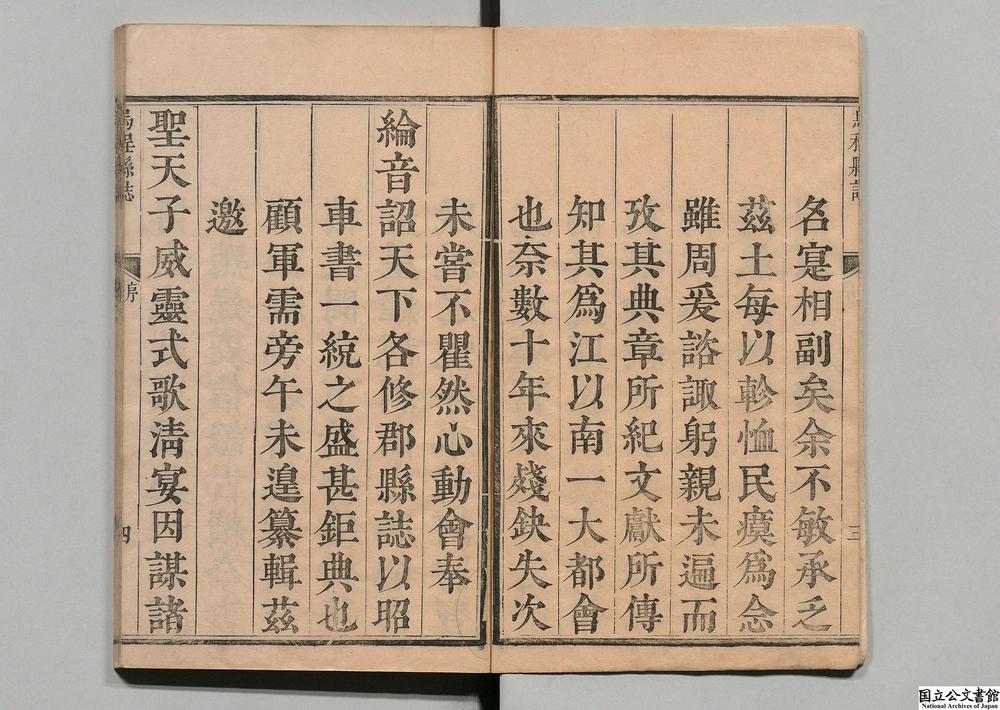 名寔相副矣余不敏承乏
茲土每以軫恤民瘼為念
雖周爰諮諏躬親未遍而
攷其典章所紀文獻所傳
知其爲江以南一大都會
也奈數十年來殘缺失次
未嘗不瞿然心動會奉
綸音詔天下各修郡縣誌以昭
車書一統之盛甚鉅典也
顧軍需旁午未遑纂輯茲
邀
聖天子威靈式歌淸宴因謀諸
烏程縣誌
序
三
四
国立公文書館
National Archives of Japan